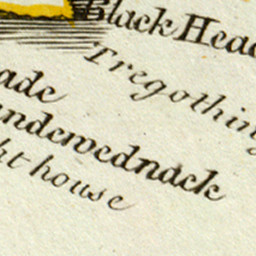 Black Head
Tregothing
ade
undewednack
ht house